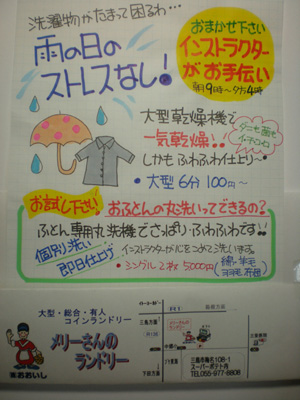 洗濯物がたまって困るわ…
雨の日の
ストレスなし!
おまかせ下さい
インストラクター
がお手伝い
朝9時〜夕方4時
大型乾燥機で
一気乾燥!!
しかもふわふわ仕上り〜
ダニも菌も
イチコロ
・大型6分100円〜
お試し下さい
おふとんの丸洗いってできるの?
ふとん専用丸洗機でさっぱりふわふわです!!
個別洗い
即日仕上げ
インストラクターが心をこめて洗います。
・シングル2枚5000円
大型・総合・有人
コインランドリー
メリーさんの
ランドリー
三島方面
下田方面